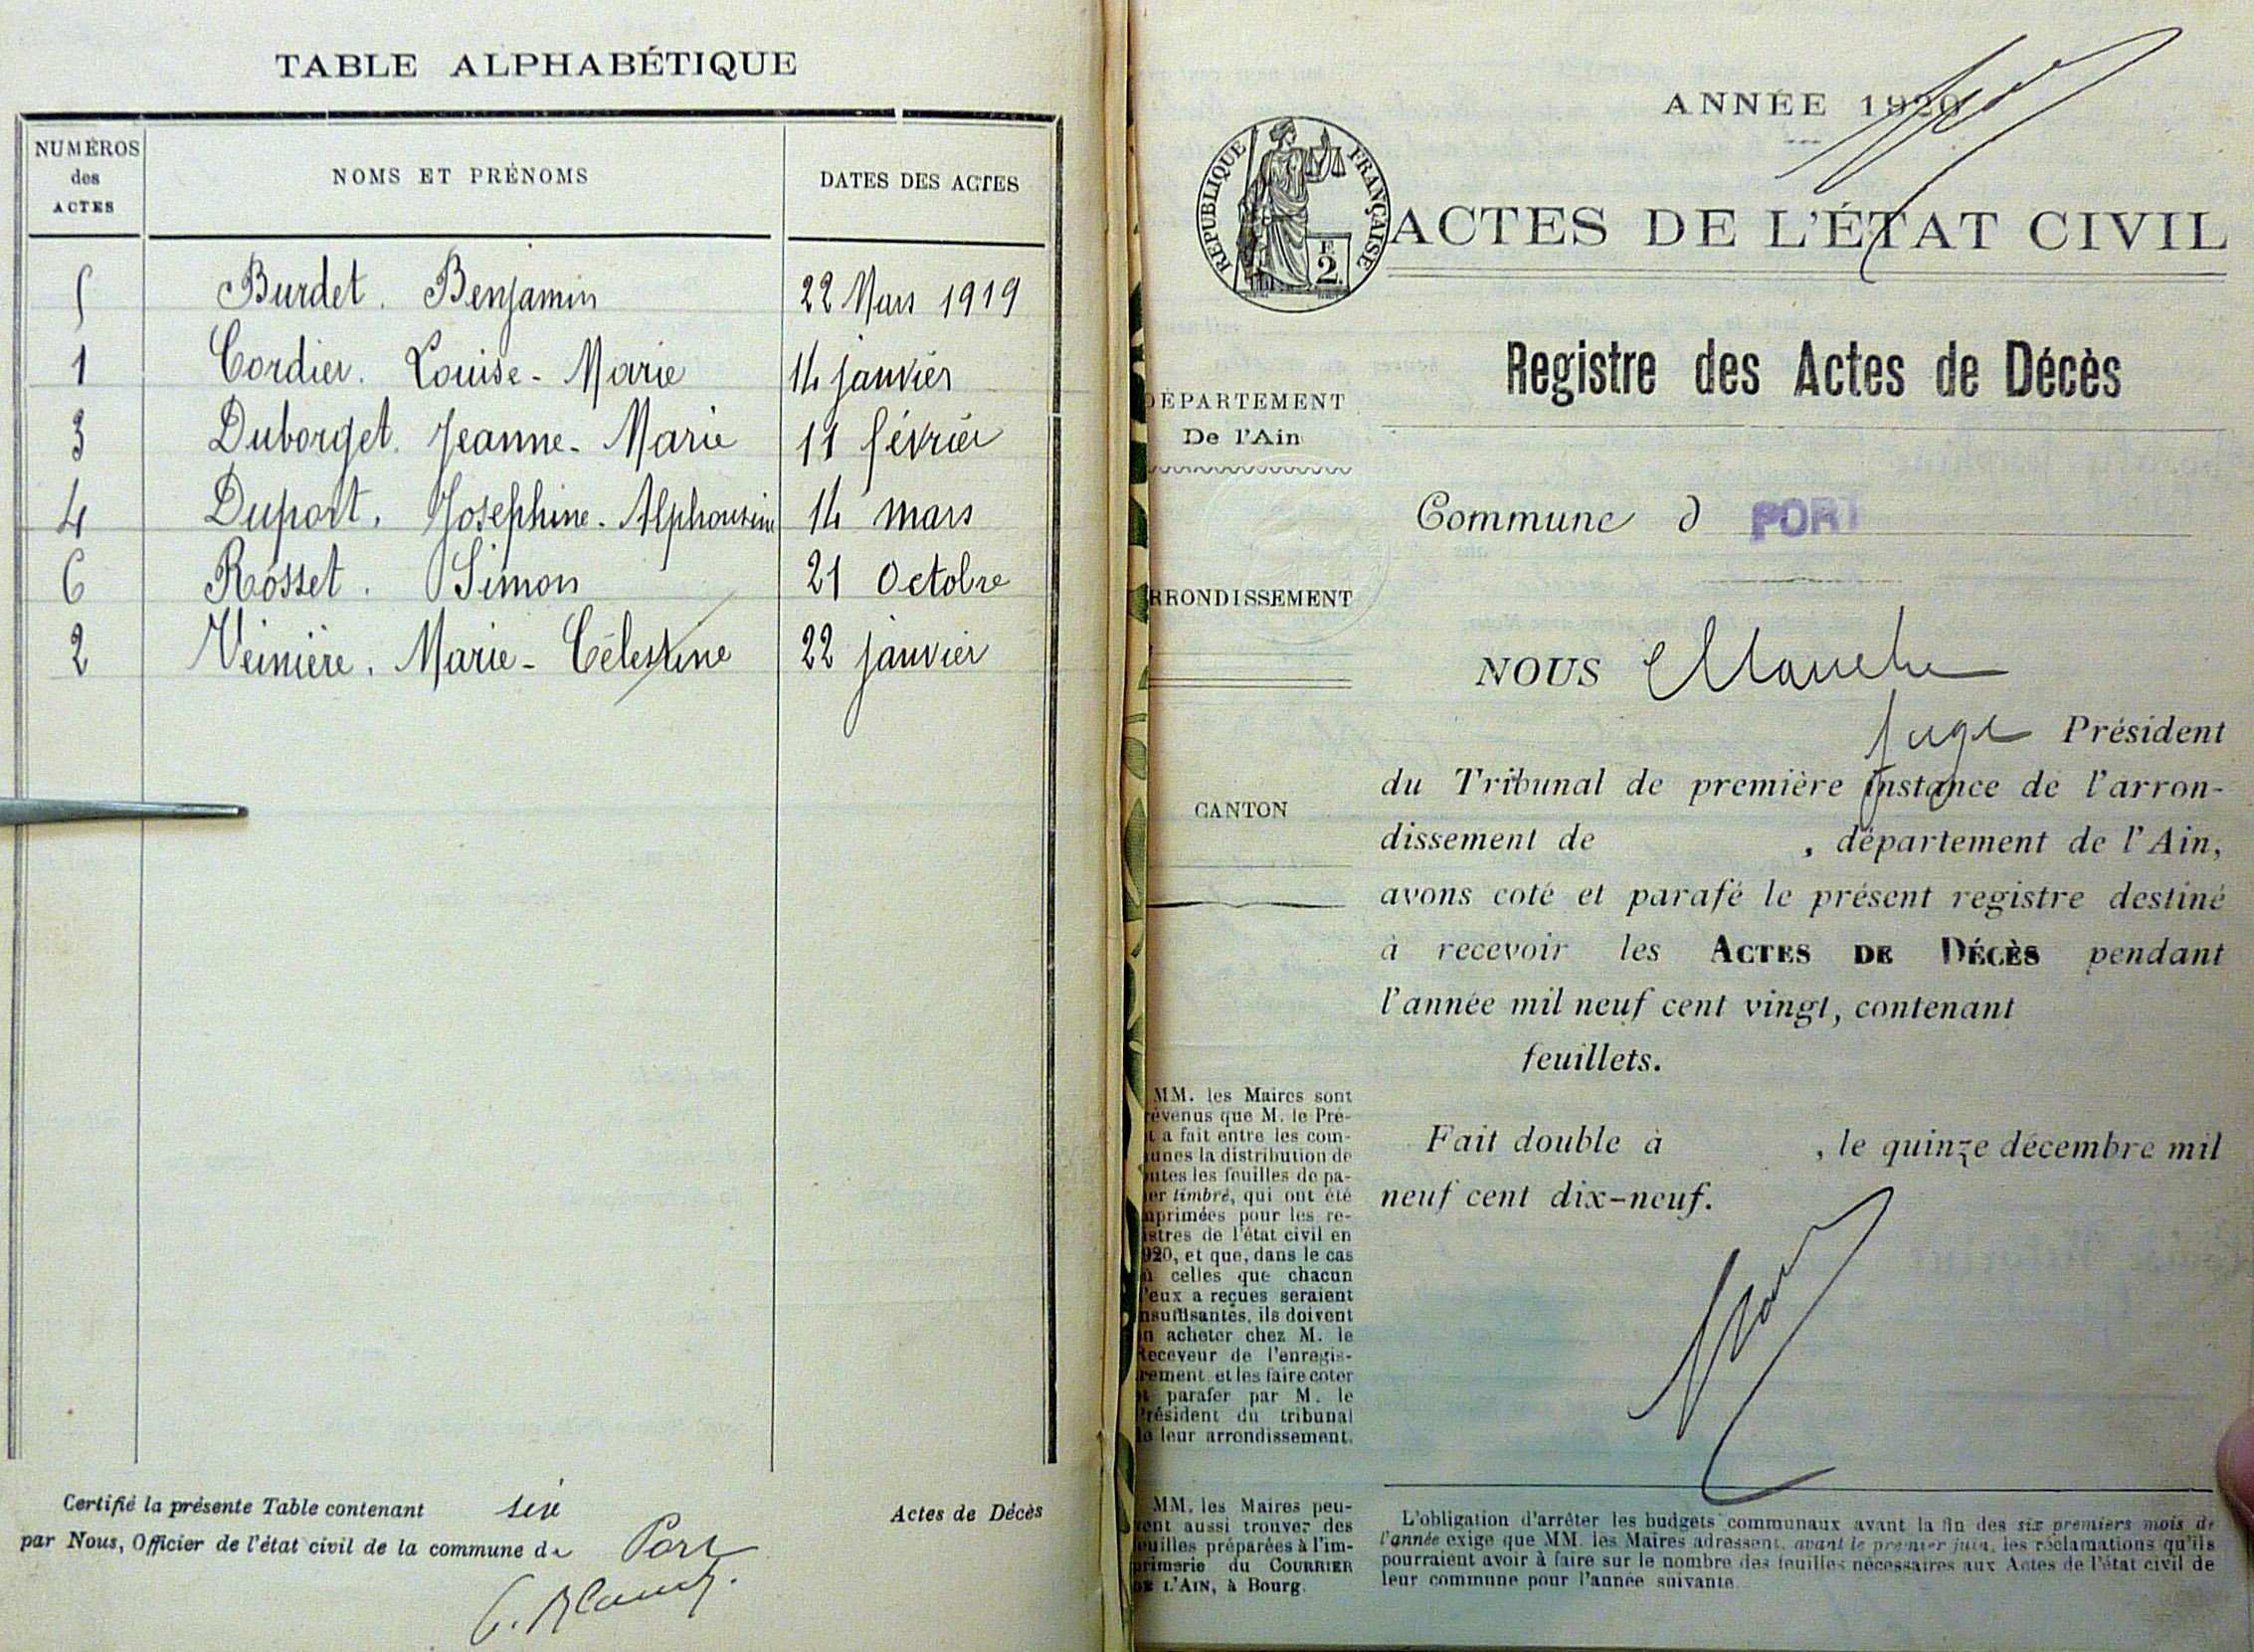 TABLE ALPHABÉTIQUE
NUMÉROS
des
ACTES
NOMS ET PRÉNOMS
DATES DES ACTES
5 Burdet. Benjamin 22 Mars 1919
1 Cordier. Louise-Marie 14 janvier
3 Duborget. Jeanne-Marie 11 février
4 Duport. Josephine-Alphonsine 14 mars
6 Rosset. Simon 21 Octobre
2 Veinière. Marie-Célestine 22 janvier
Certifié la présente Table contenant six Actes de Décès
par Nous, Officier de l'état civil de la commune de Port
ANNÉE 1920
RÉPUBLIQUE FRANÇAISE
E
2
ACTES DE L'ÉTAT CIVIL
Registre des Actes de Décès
DÉPARTEMENT
De l'Ain
Commune d PORT
RRONDISSEMENT
NOUS
juge Président
du Tribunal de première instance de l'arron-
dissement de , département de l'Ain,
CANTON
avons coté et parafé le présent registre destiné
à recevoir les ACTES DE DÉCÈS pendant
l'année mil neuf cent vingt, contenant
feuillets.
Fait double à , le quinze décembre mil
neuf cent dix-neuf.
MM. les Maires sont
révenus que M. le Pré-
t a fait entre les com-
unes la distribution de
utes les feuilles de pa-
er timbré, qui ont été
mprimées pour les re-
istres de l'état civil en
920, et que, dans le cas
ù celles que chacun
'eux a reçues seraient
nsuffisantes, ils doivent
n acheter chez M. le
Receveur de l'enregis-
rement et les faire coter
t parafer par M. le
Président du tribunal
e leur arrondissement.
MM. les Maires peu-
vent aussi trouver des
euilles préparées à l'im-
primerie du COURRIER
DE L'AIN, à Bourg.
L'obligation d'arrêter les budgets communaux avant la fin des six premiers mois de
l'année exige que MM. les Maires adressent, avant le premier juin, les réclamations qu'ils
pourraient avoir à faire sur le nombre des feuilles nécessaires aux Actes de l'état civil de
leur commune pour l'année suivante.